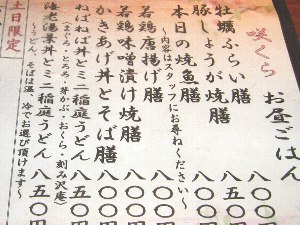 咲くら
お昼ごはん
牡蠣ふらい膳 八〇〇円
豚しょうが焼膳 八五〇円
本日の焼魚膳 八〇〇円
～内容はスタッフにお尋ねください～
若鶏唐揚げ膳 八〇〇
若鶏味噌漬け焼膳 八〇〇
かきあげ丼とそば膳 八〇〇円
ねばねば丼とミニ稲庭うどん 八五〇円
(まぐろ・とろろ・芽かぶ・おくら・刻み沢庵)
海老湯葉丼とミニ稲庭うどん 八五〇円
～うどん、そばは温、冷でお選び頂けます～
土日限定